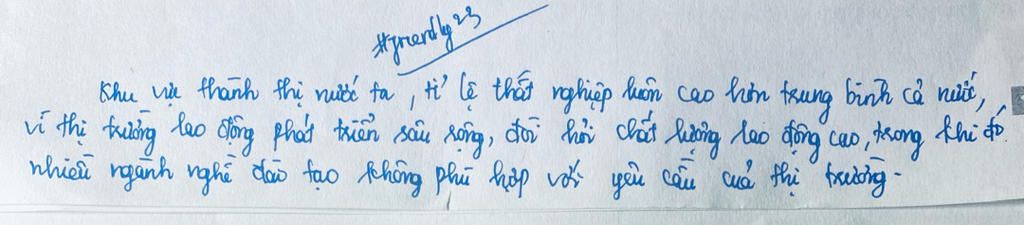 #frierdly23
Khu vực thành thị nước ta, tỉ lệ thất nghiệp luôn cao hơn trung bình cả nước,
vì thị trường lao động phát triển sâu rộng, đòi hỏi chất lượng lao động cao, trong khi đó
nhiều ngành nghề đào tạo không phù hợp với yêu cầu của thị trường.